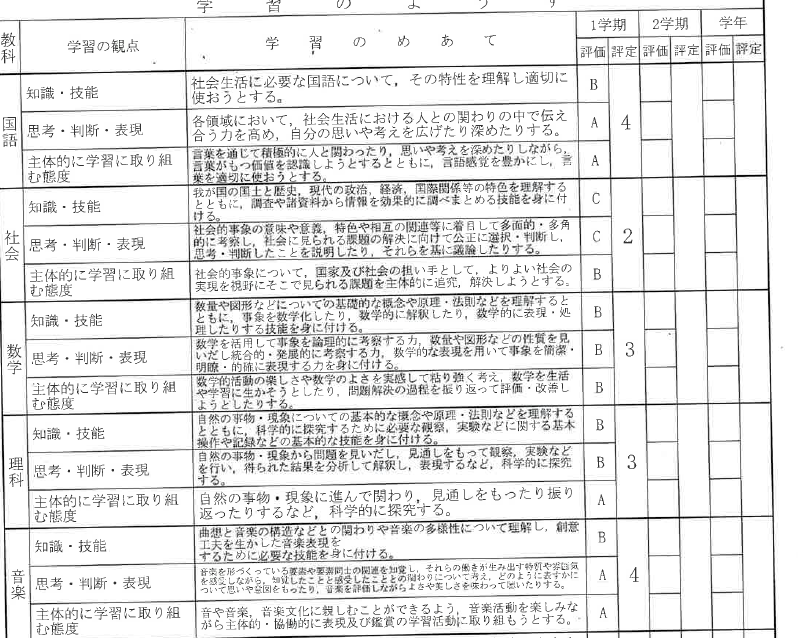 学習のようす
教科 学習の観点 学習のめあて 1学期 2学期 学年
評価 評定 評価 評定 評価 評定
国語
知識・技能
社会生活に必要な国語について，その特性を理解し適切に
使おうとする。
B
思考・判断・表現
各領域において，社会生活における人との関わりの中で伝え
合う力を高め，自分の思いや考えを広げたり深めたりする。
A
4
主体的に学習に取り組
む態度
言葉を通じて積極的に人と関わったり，思いや考えを深めたりしながら，
言葉がもつ価値を認識しようとするとともに，言語感覚を豊かにし，言
葉を適切に使おうとする。
A
社会
知識・技能
我が国の国土と歴史，現代の政治，経済，国際関係等の特色を理解する
とともに，調査や諸資料から情報を効果的に調べまとめる技能を身に付
ける。
C
思考・判断・表現
社会的事象の意味や意義，特色や相互の関連等に着目して多面的・多角
的に考察し，社会に見られる課題の解決に向けて公正に選択・判断し，
思考・判断したことを説明したり，それらを基に議論したりする。
C
2
主体的に学習に取り組
む態度
社会的事象について，国家及び社会の担い手として，よりよい社会の
実現を視野にそこで見られる課題を主体的に追究，解決しようとする。
B
数学
知識・技能
数量や図形などについての基礎的な概念や原理・法則などを理解すると
ともに，事象を数学化したり，数学的に解釈したり，数学的に表現・処
理したりする技能を身に付ける。
B
思考・判断・表現
数学を活用して事象を論理的に考察する力，数量や図形などの性質を見
いだし統合的・発展的に考察する力，数学的な表現を用いて事象を簡潔・
明瞭・的確に表現する力を身に付ける。
B
3
主体的に学習に取り組
む態度
数学的活動の楽しさや数学のよさを実感して粘り強く考え，数学を生活
や学習に生かそうとしたり，問題解決の過程を振り返って評価・改善し
ようとしたりする。
B
理科
知識・技能
自然の事物・現象についての基本的な概念や原理・法則などを理解する
とともに，科学的に探究するために必要な観察，実験などに関する基本
操作や記録などの基本的な技能を身に付ける。
B
思考・判断・表現
自然の事物・現象から問題を見いだし，見通しをもって観察，実験など
を行い，得られた結果を分析して解釈し，表現するなど，科学的に探究
する。
B
3
主体的に学習に取り組
む態度
自然の事物・現象に進んで関わり，見通しをもったり振り
返ったりするなど，科学的に探究する。
A
音楽
知識・技能
曲想と音楽の構造などとの関わりや音楽の多様性について理解し，創意
工夫を生かした音楽表現を
するために必要な技能を身に付ける。
B
思考・判断・表現
音楽を形づくっている要素や要素同士の関連を知覚し，それらの働きが生み出す特質や雰囲気
を感受しながら，知覚したことと感受したこととの関わりについて考え，どのように表すかに
ついて思いや意図をもったり，音楽を評価しながらよさや美しさを味わって聴いたりする。
A
4
主体的に学習に取り組
む態度
音や音楽，音楽文化に親しむことができるよう，音楽活動を楽しみな
がら主体的・協働的に表現及び鑑賞の学習活動に取り組もうとする。
A